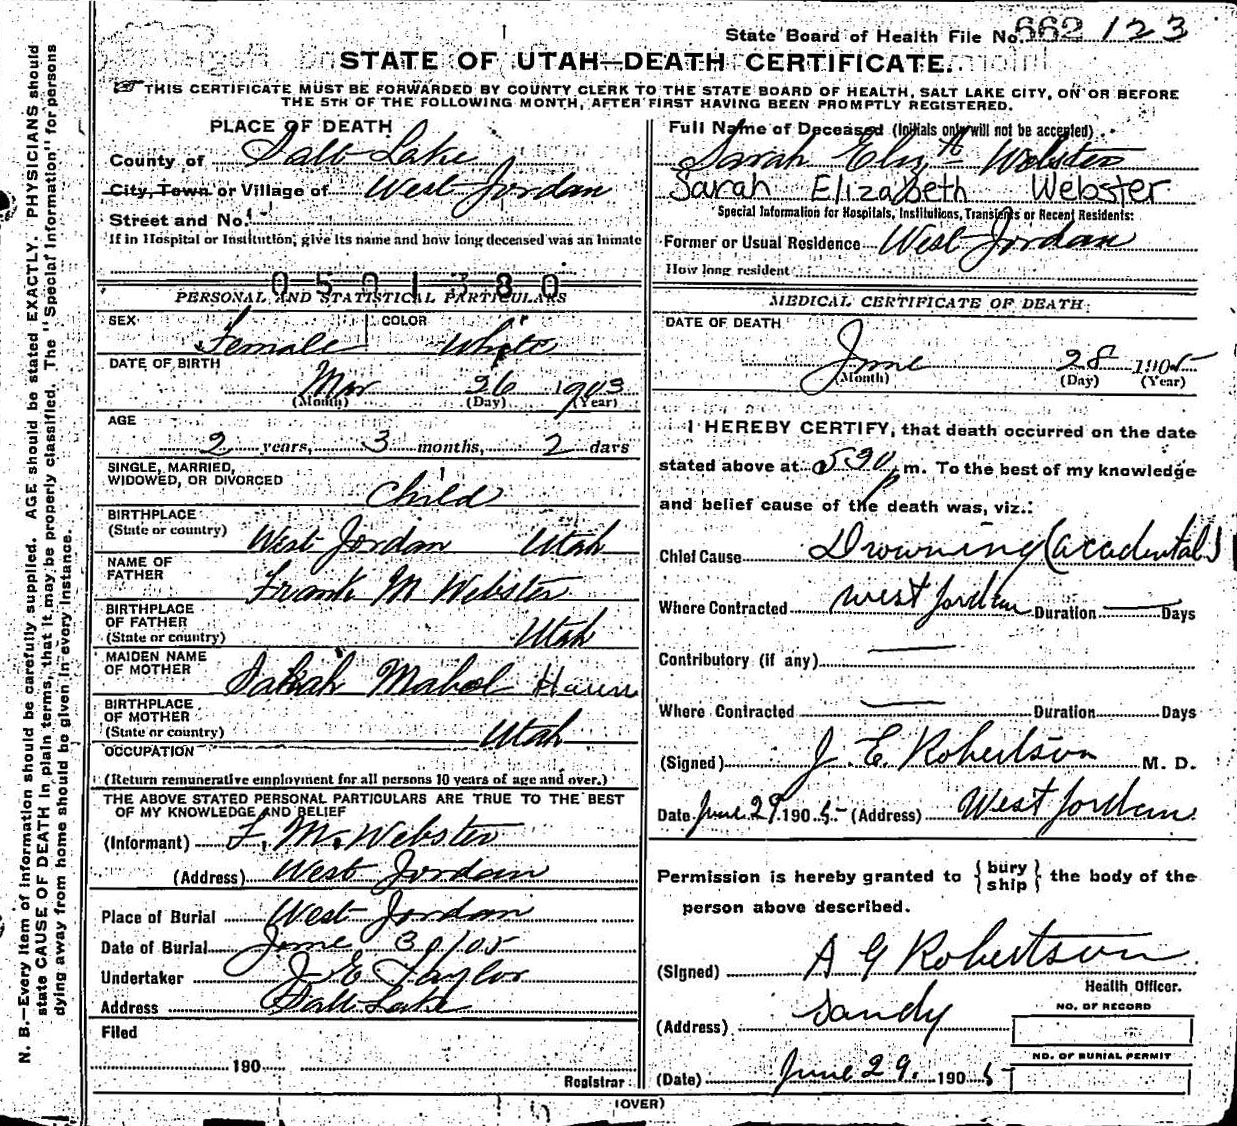 State Board of Health File No. 662 123
STATE OF UTAH—DEATH CERTIFICATE.
THIS CERTIFICATE MUST BE FORWARDED BY COUNTY CLERK TO THE STATE BOARD OF HEALTH, SALT LAKE CITY, ON OR BEFORE
THE 5TH OF THE FOLLOWING MONTH, AFTER FIRST HAVING BEEN PROMPTLY REGISTERED.
N. B.—Every item of information should be carefully supplied. AGE should be stated EXACTLY. PHYSICIANS should
state CAUSE OF DEATH in plain terms, that it may be properly classified. The "Special Information" for persons
dying away from home should be given in every instance.
PLACE OF DEATH
County of Salt Lake
City, Town or Village of West Jordan
Street and No.
If in Hospital or Institution, give its name and how long deceased was an inmate
0501380
PERSONAL AND STATISTICAL PARTICULARS
SEX Female COLOR White
DATE OF BIRTH
Mar 26 1903
(Month) (Day) (Year)
AGE
2 years, 3 months, 2 days
SINGLE, MARRIED,
WIDOWED, OR DIVORCED Child
BIRTHPLACE
(State or country) West Jordan Utah
NAME OF
FATHER Frank M Webster
BIRTHPLACE
OF FATHER
(State or country) Utah
MAIDEN NAME
OF MOTHER Mabel
BIRTHPLACE
OF MOTHER
(State or country) Utah
OCCUPATION
(Return remunerative employment for all persons 10 years of age and over.)
THE ABOVE STATED PERSONAL PARTICULARS ARE TRUE TO THE BEST
OF MY KNOWLEDGE AND BELIEF
(Informant) F. M. Webster
(Address) West Jordan
Place of Burial West Jordan
Date of Burial June 30/05
Undertaker J E Taylor
Address Salt Lake
Filed
190
Registrar
Full Name of Deceased (Initials only will not be accepted)
Sarah Elizth Webster
Sarah Elizabeth Webster
Special Information for Hospitals, Institutions, Transients or Recent Residents:
Former or Usual Residence West Jordan
How long resident
MEDICAL CERTIFICATE OF DEATH
DATE OF DEATH
June 28 1905
(Month) (Day) (Year)
I HEREBY CERTIFY, that death occurred on the date
stated above at 530 p m. To the best of my knowledge
and belief cause of the death was, viz.:
Chief Cause Drowning (accidental)
Where Contracted West Jordan Duration — Days
Contributory (if any) —
Where Contracted — Duration Days
(Signed) J. E. Robertson M. D.
Date June 29. 1905 (Address) West Jordan
Permission is hereby granted to { bury ship } the body of the
person above described.
(Signed) A G Robertson
Health Officer.
(Address) Sandy
NO. OF RECORD
NO. OF BURIAL PERMIT
(Date) June 29. 1905
(OVER)